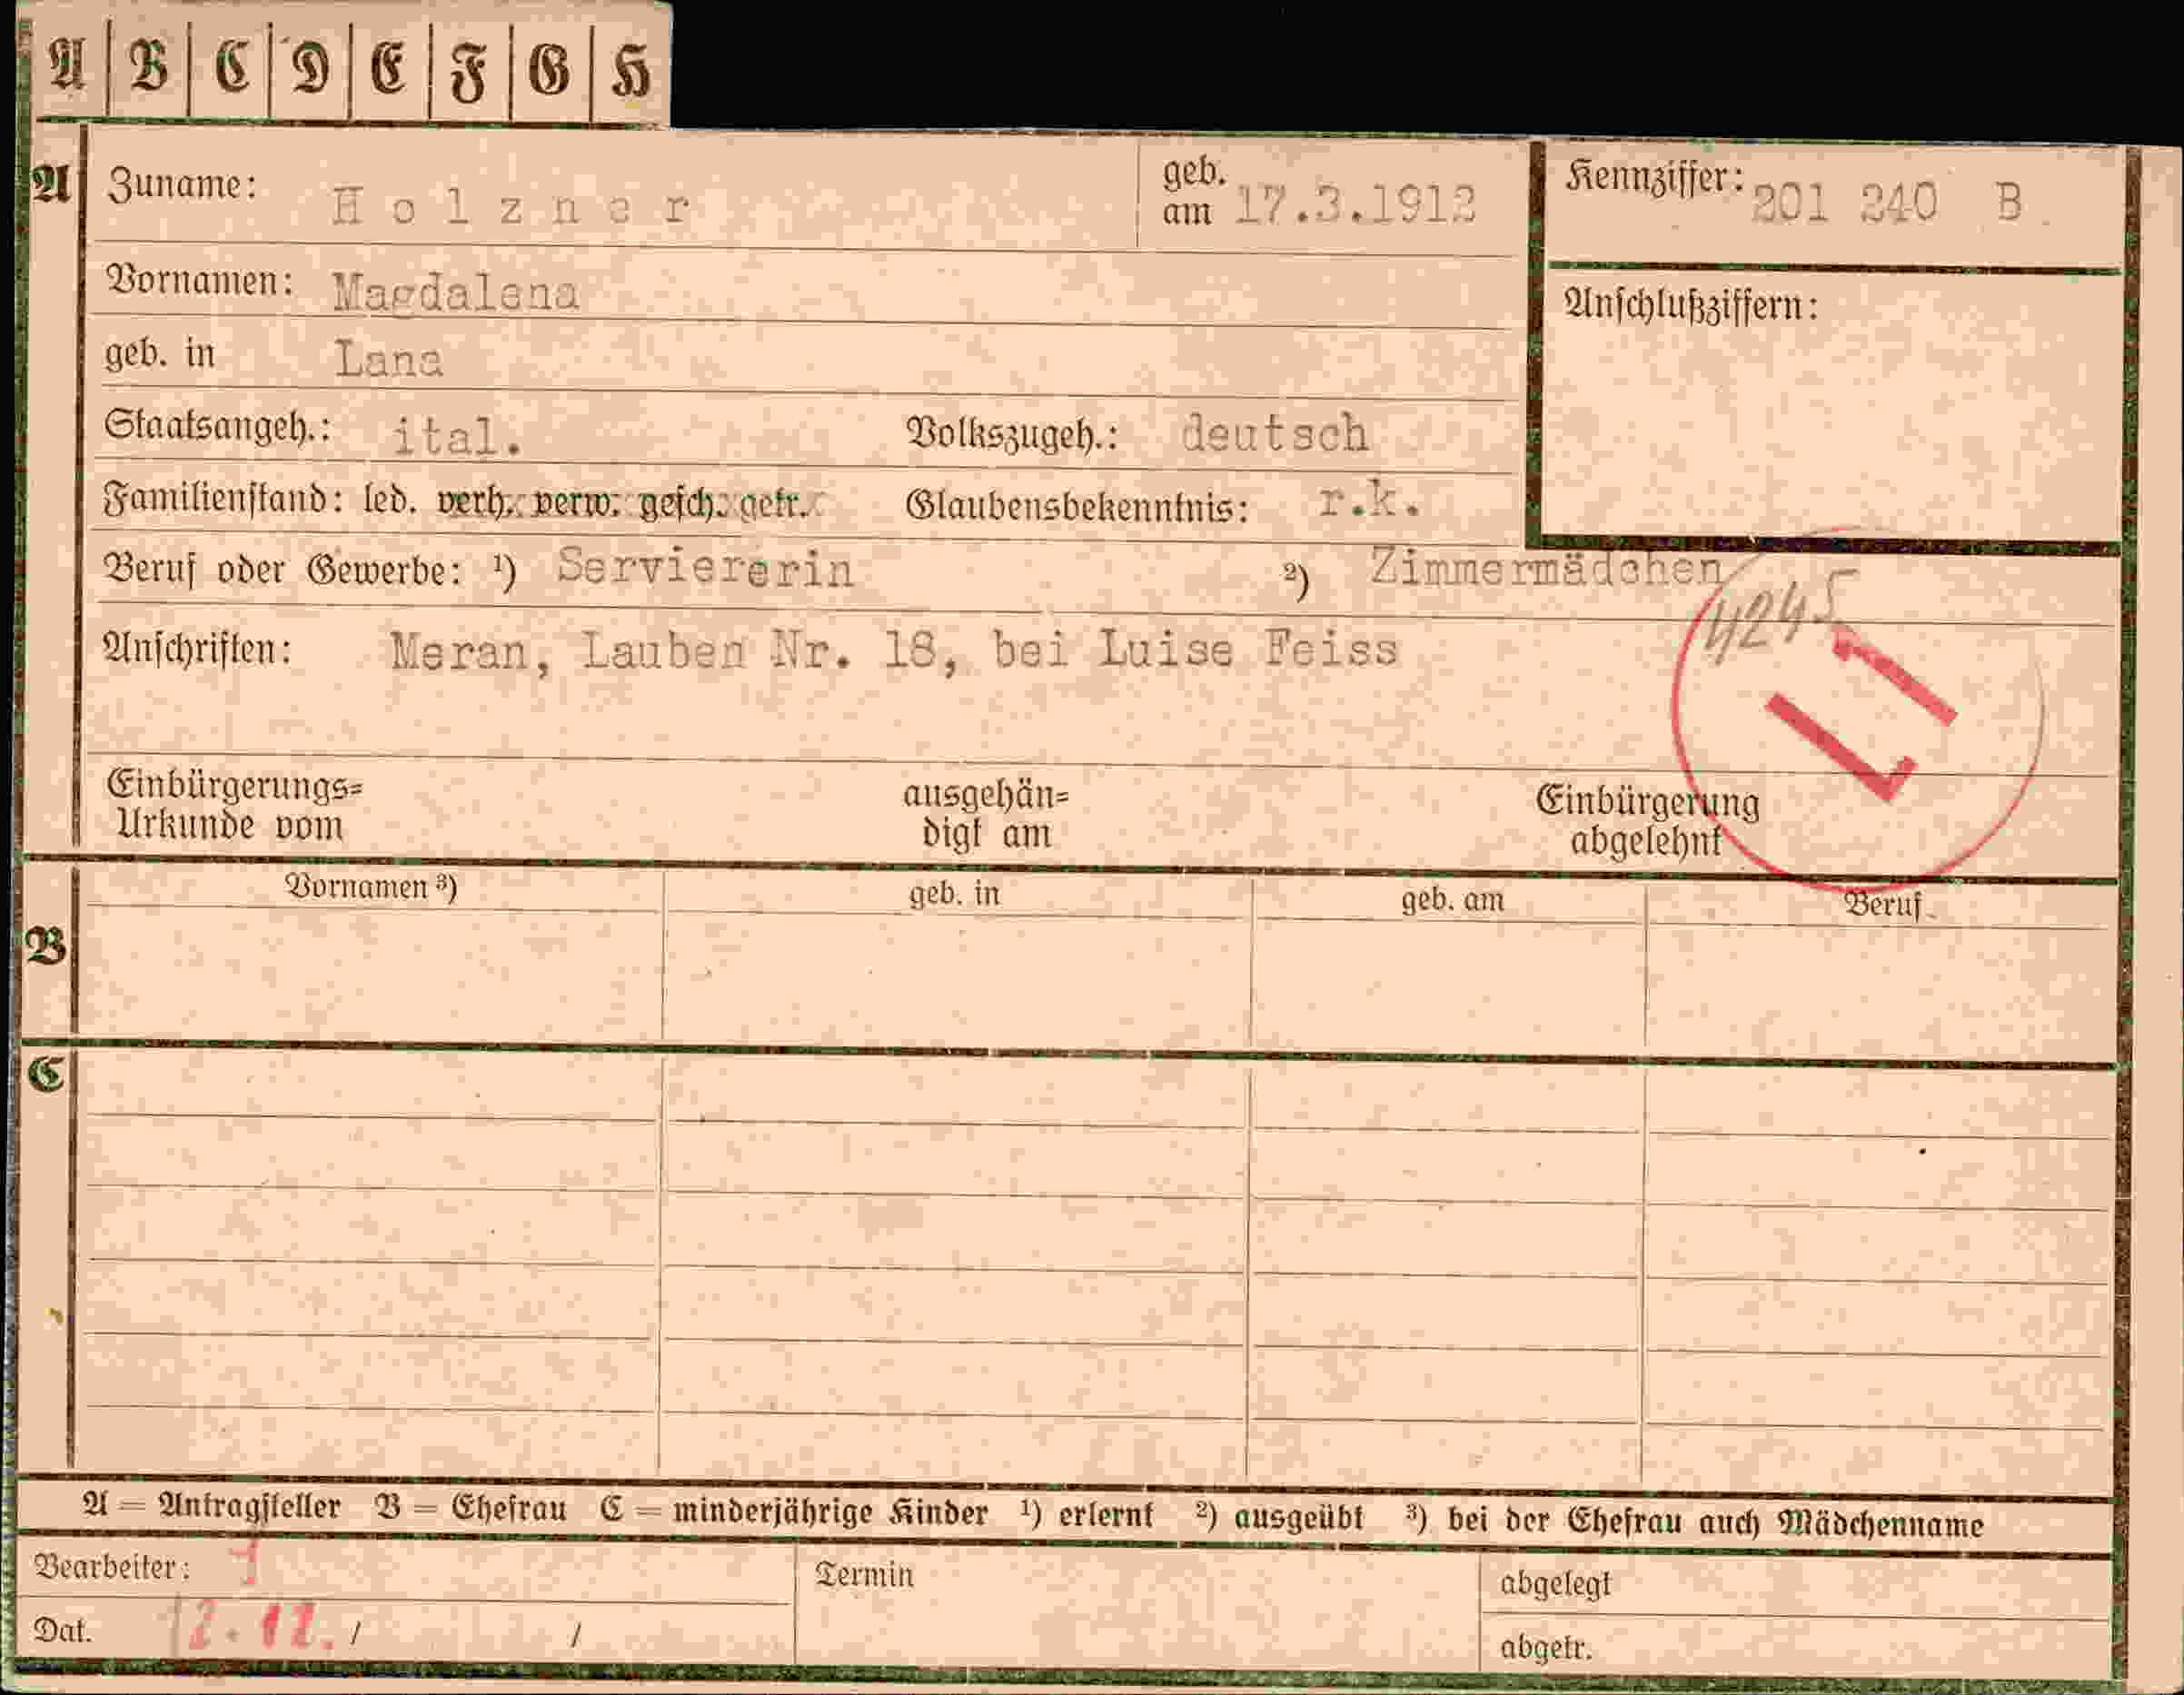 A B C D E F G H
A Zuname: Holzner geb. am 17.3.1912 Kennziffer: 201 240 B
Vornamen: Magdalena Anschlußziffern:
geb. in Lana
Staatsangeh.: ital. Volkszugeh.: deutsch
Familienstand: led. verh. verw. gesch. getr. Glaubensbekenntnis: r.k.
Beruf oder Gewerbe: ¹) Serviererin ²) Zimmermädchen
4245
Anschriften: Meran, Lauben Nr. 18, bei Luise Feiss
Einbürgerungs= ausgehän= Einbürgerung
Urkunde vom digt am abgelehnt
B Vornamen ³) geb. in geb. am Beruf
C
A = Antragsteller B = Ehefrau C = minderjährige Kinder ¹) erlernt ²) ausgeübt ³) bei der Ehefrau auch Mädchenname
Bearbeiter: Termin abgelegt
Dat. 12. 12. / / abgetr.